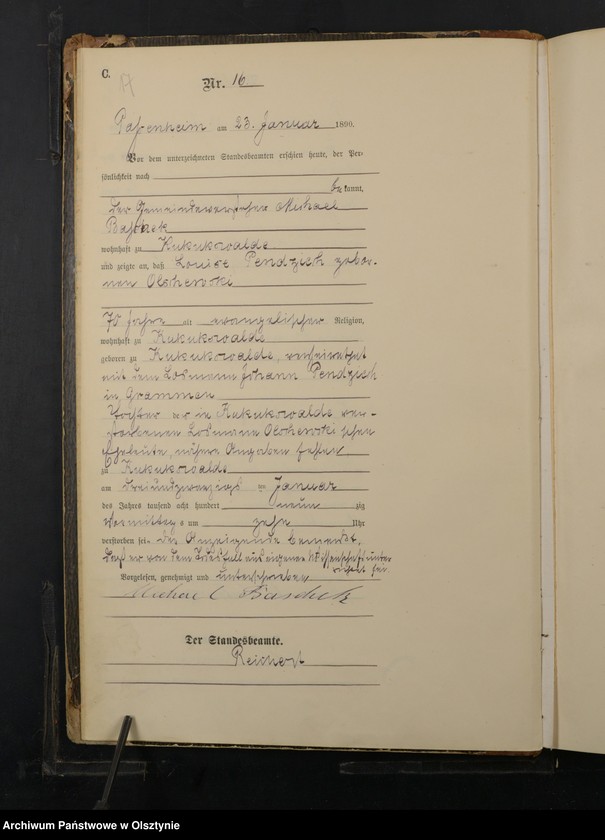 C.
Nr. 16
am 23. Januar 1899.
Vor dem unterzeichneten Standesbeamten erschien heute, der Per-
sönlichkeit nach
be kannt,
der Gemeindevorsteher Michael
wohnhaft zu Kukukswalde
und zeigte an, daß Louise Pendzich gebor-
nen Olschewski
70 Jahre alt evangelischer Religion,
wohnhaft zu Kukukswalde
geboren zu Kukukswalde, verheirathet
mit dem Losmann Johann Pendzich
in Grammen
Tochter der in Kukukswalde ver-
storbenen Losmann Olschewski'schen
Eheleute, nähere Angaben fehlen
zu Kukukswalde
am dreiundzwanzigs ten Januar
des Jahres tausend acht hundert neun zig
Vormittag s um zehn Uhr
verstorben sei. Der Anzeigende bemerkt,
daß er von dem Todesfall aus eigener Wissenschaft unter
richtet sei.
Vorgelesen, genehmigt und unterschrieben
Michael
Der Standesbeamte.
Reichert
Archiwum Państwowe w Olsztynie